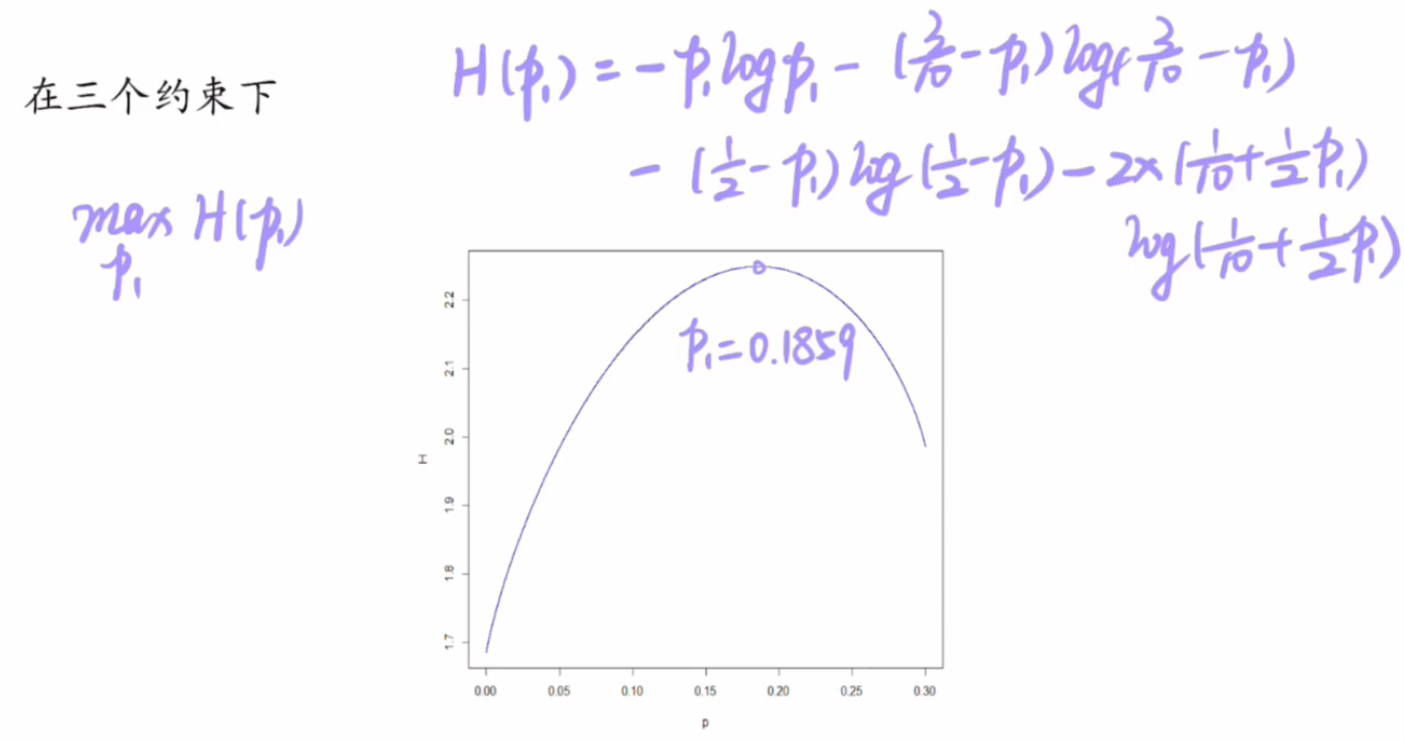 在三个约束下
max H(p₁)
p₁
H(p₁) = -p₁ log p₁ - (3/10 - p₁) log(3/10 - p₁)
- (1/2 - p₁) log(1/2 - p₁) - 2×(1/10 + 1/2 p₁)
log(1/10 + 1/2 p₁)
p₁ = 0.1859
H
2.2
2.1
2.0
1.9
1.8
1.7
0.00 0.05 0.10 0.15 0.20 0.25 0.30
p